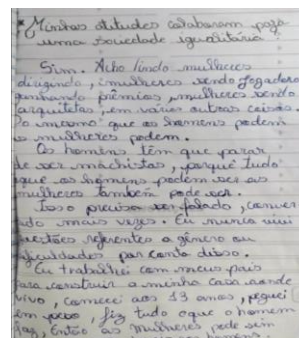 * Minhas atitudes colaboram para
uma sociedade igualitária?
Sim. Acho lindo mulheres
dirigindo, mulheres sendo jogadora
ganhando prêmios, mulheres sendo
arquitetas, em várias outras coisas
o mesmo que os homens podem
as mulheres podem.
Os homens têm que parar
de ser machistas, porque tudo
que os homens podem ser as
mulheres também pode ser.
Isso precisa ser falado, conver
ado mais vezes. Eu nunca vivi
questões referentes a gênero ou
ficuldades por conta disso.
Eu trabalhei com meus pais
para construir a minha casa aonde
vivo, comecei aos 13 anos, peguei
em peso, fiz tudo o que o homem
faz, Então as mulheres pode sim
homens.